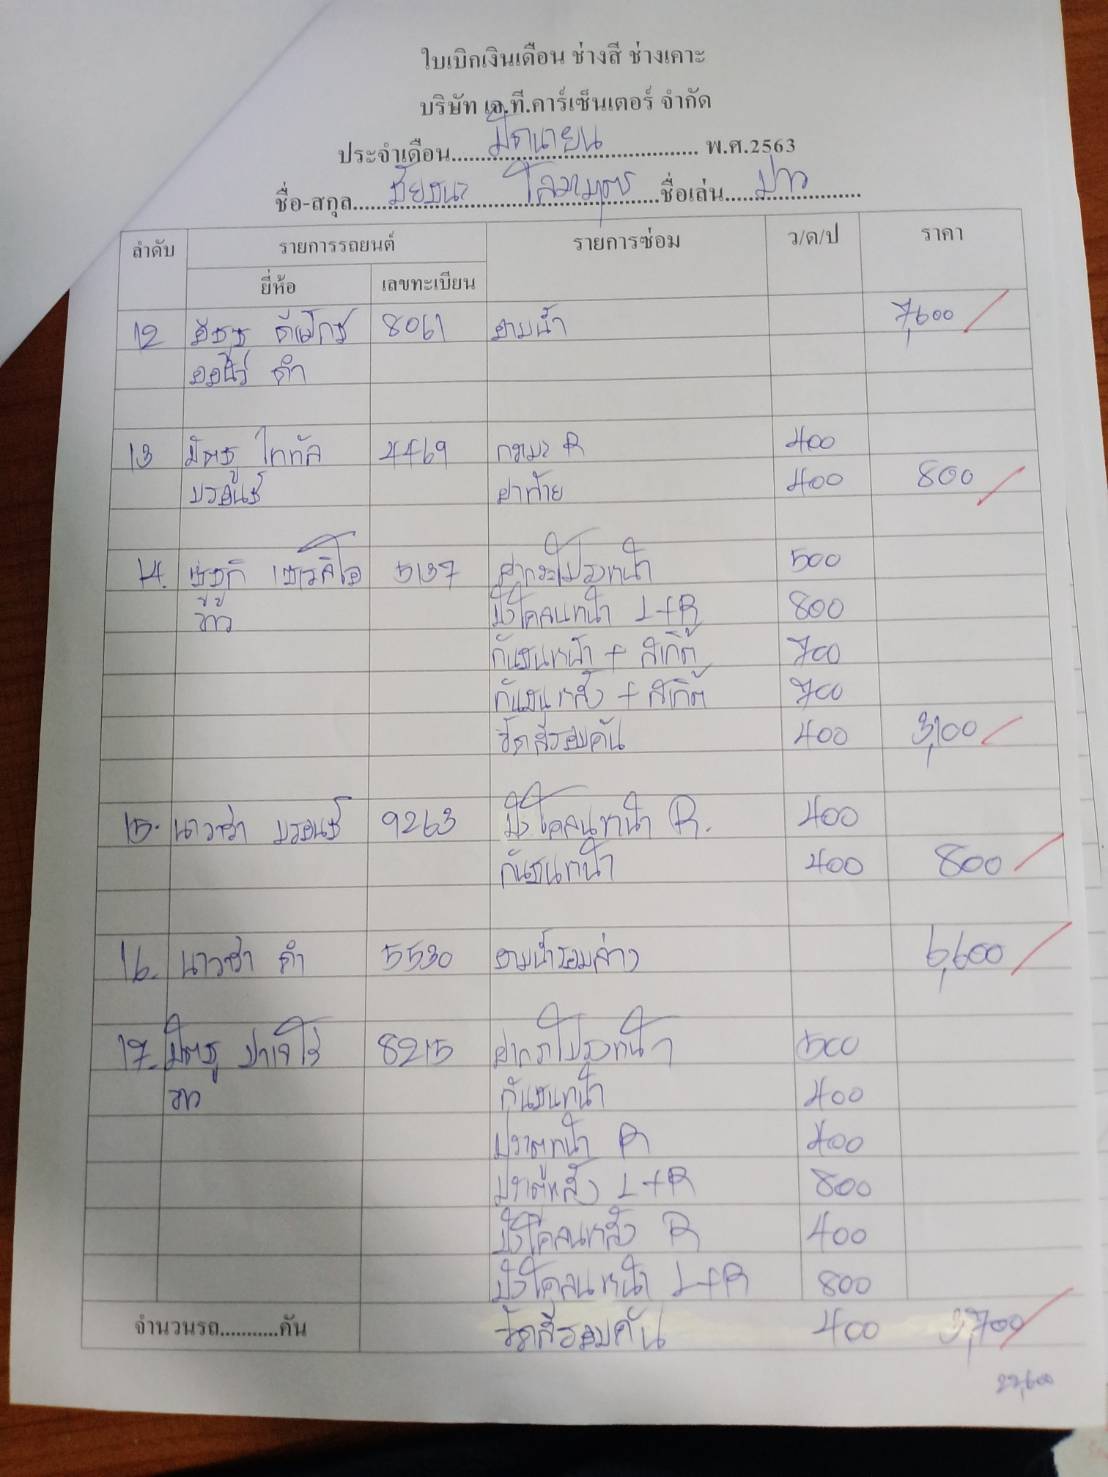 ใบเบิกเงินเดือน ช่างสี ช่างเคาะ
บริษัท เอ.ที.คาร์เซ็นเตอร์ จำกัด
ประจำเดือน มิถุนายน พ.ศ.2563
ชื่อ-สกุล ชื่อเล่น
ลำดับ รายการรถยนต์ รายการซ่อม ว/ด/ป ราคา
ยี่ห้อ เลขทะเบียน
12 อีซูซุ ดีแม็กซ์ 8061 อาบน้ำ 7,600
ออนิว ดำ
13 มิตซู ไททัล 4469 กระบะ R 400
บรอนซ์ ฝาท้าย 400 800
14. ซูซูกิ เซเลลิโอ 5137 ฝากระโปรงหน้า 500
ขาว บังโคลนหน้า L+R 800
กันชนหน้า + สเกิต 700
กันชนหลัง + สเกิต 700
ขัดสีรอบคัน 400 3,100
15. นาวาร่า บรอนซ์ 9263 บังโคลนหน้า R. 400
กันชนหน้า 400 800
16. นาวาร่า ดำ 5530 อาบน้ำรอบล่าง 6,600
17. มิตซู ปาเจโร่ 8215 ฝากระโปรงหน้า 500
ขาว กันชนหน้า 400
ประตูหน้า R 400
ประตูหลัง L+R 800
บังโคลนหลัง R 400
บังโคลนหน้า L+R 800
จำนวนรถ...........คัน ขัดสีรอบคัน 400 3,700
22,600